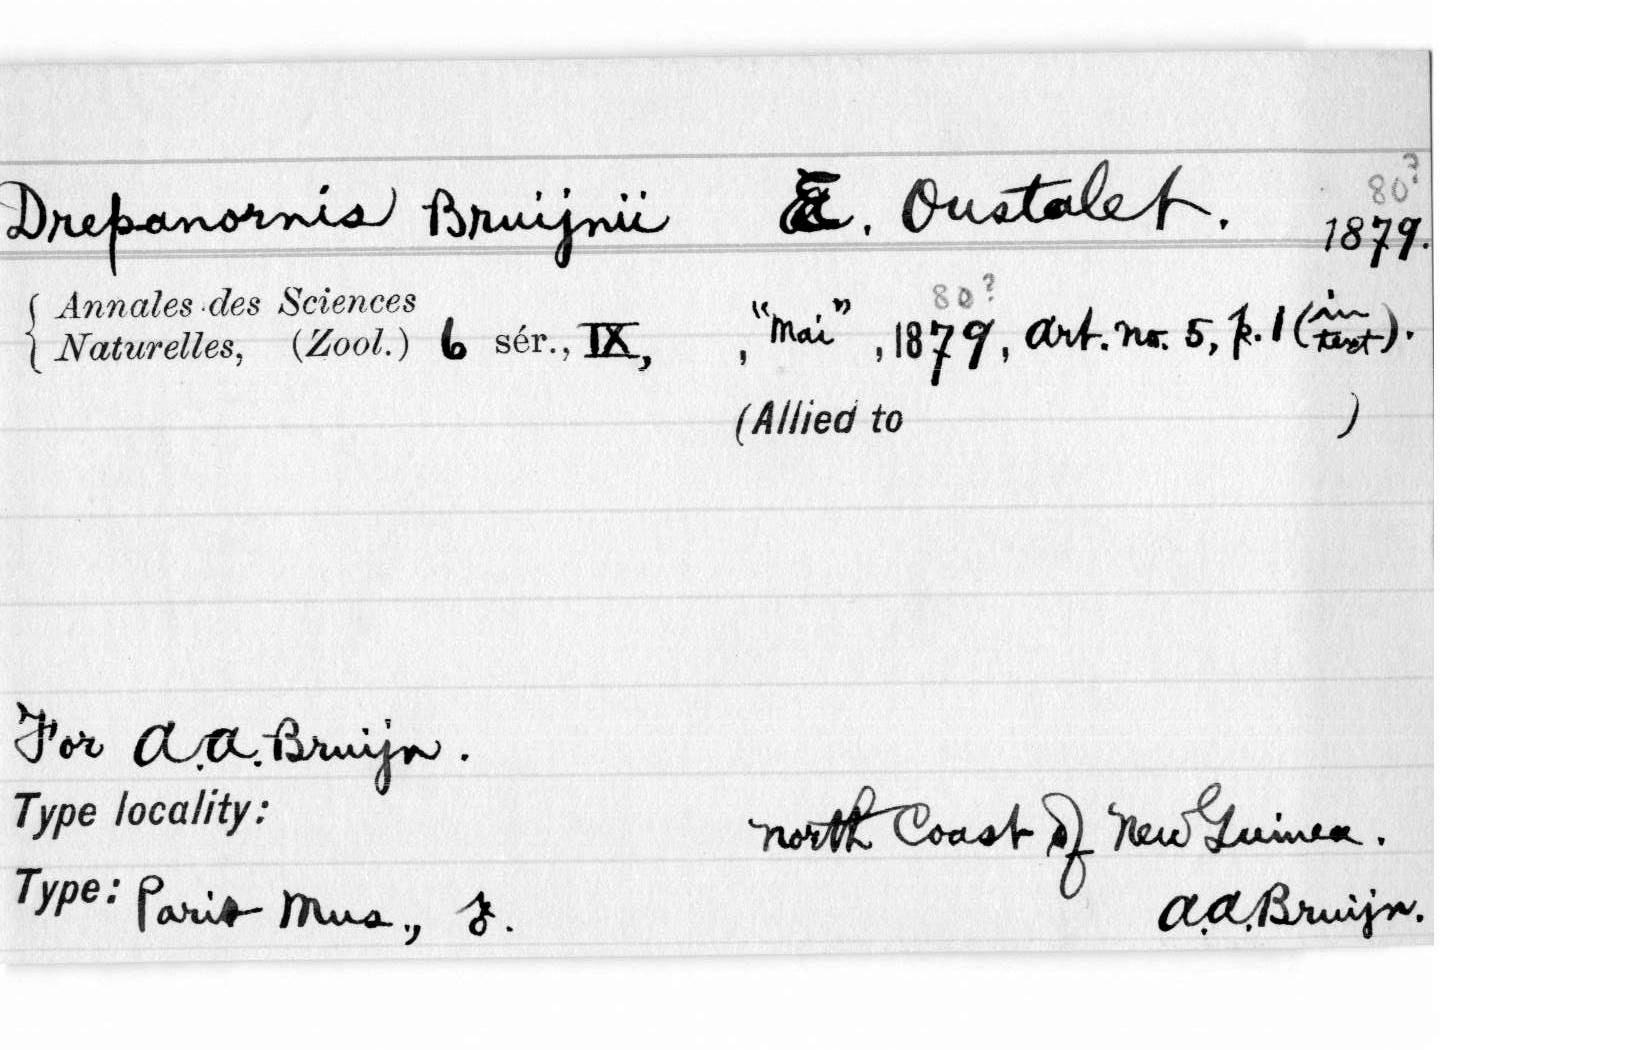 80?
Drepanornis Bruijnii E. Oustalet. 1879.
Annales des Sciences
80?
Naturelles, (Zool.) 6 sér., IX, , "Mai", 1879, art. no. 5, p. 1 (in text).
(Allied to )
For A.A. Bruijn.
Type locality:
North Coast of New Guinea.
Type: Paris Mus., A.A. Bruijn.